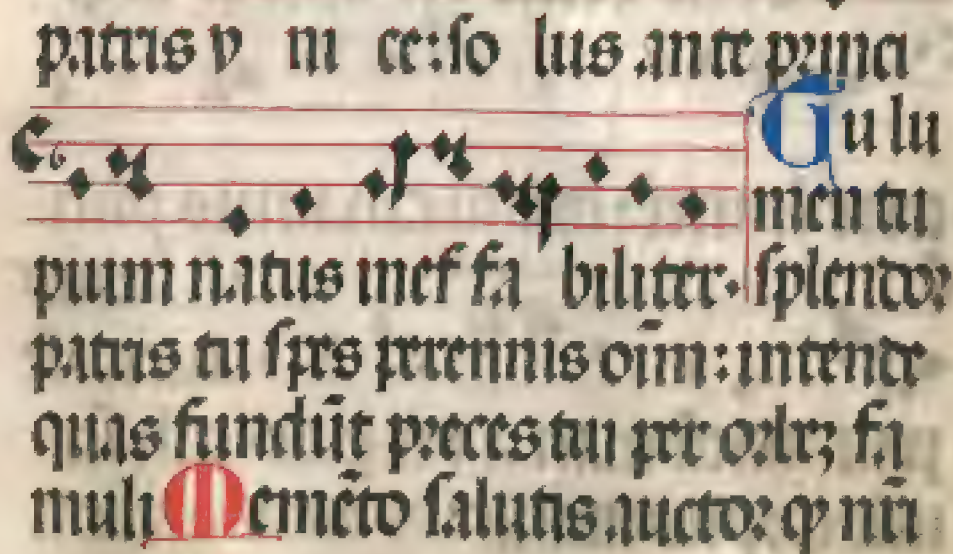 patris v ni ce: so lus ante princi
Tu lu
men tu
pium natus inef fa biliter. splendor
patris tu spes perennis oīm: intende
quas fundūt preces tui per orbēz fa
muli Memēto salutis auctor qꝫ nr̄i